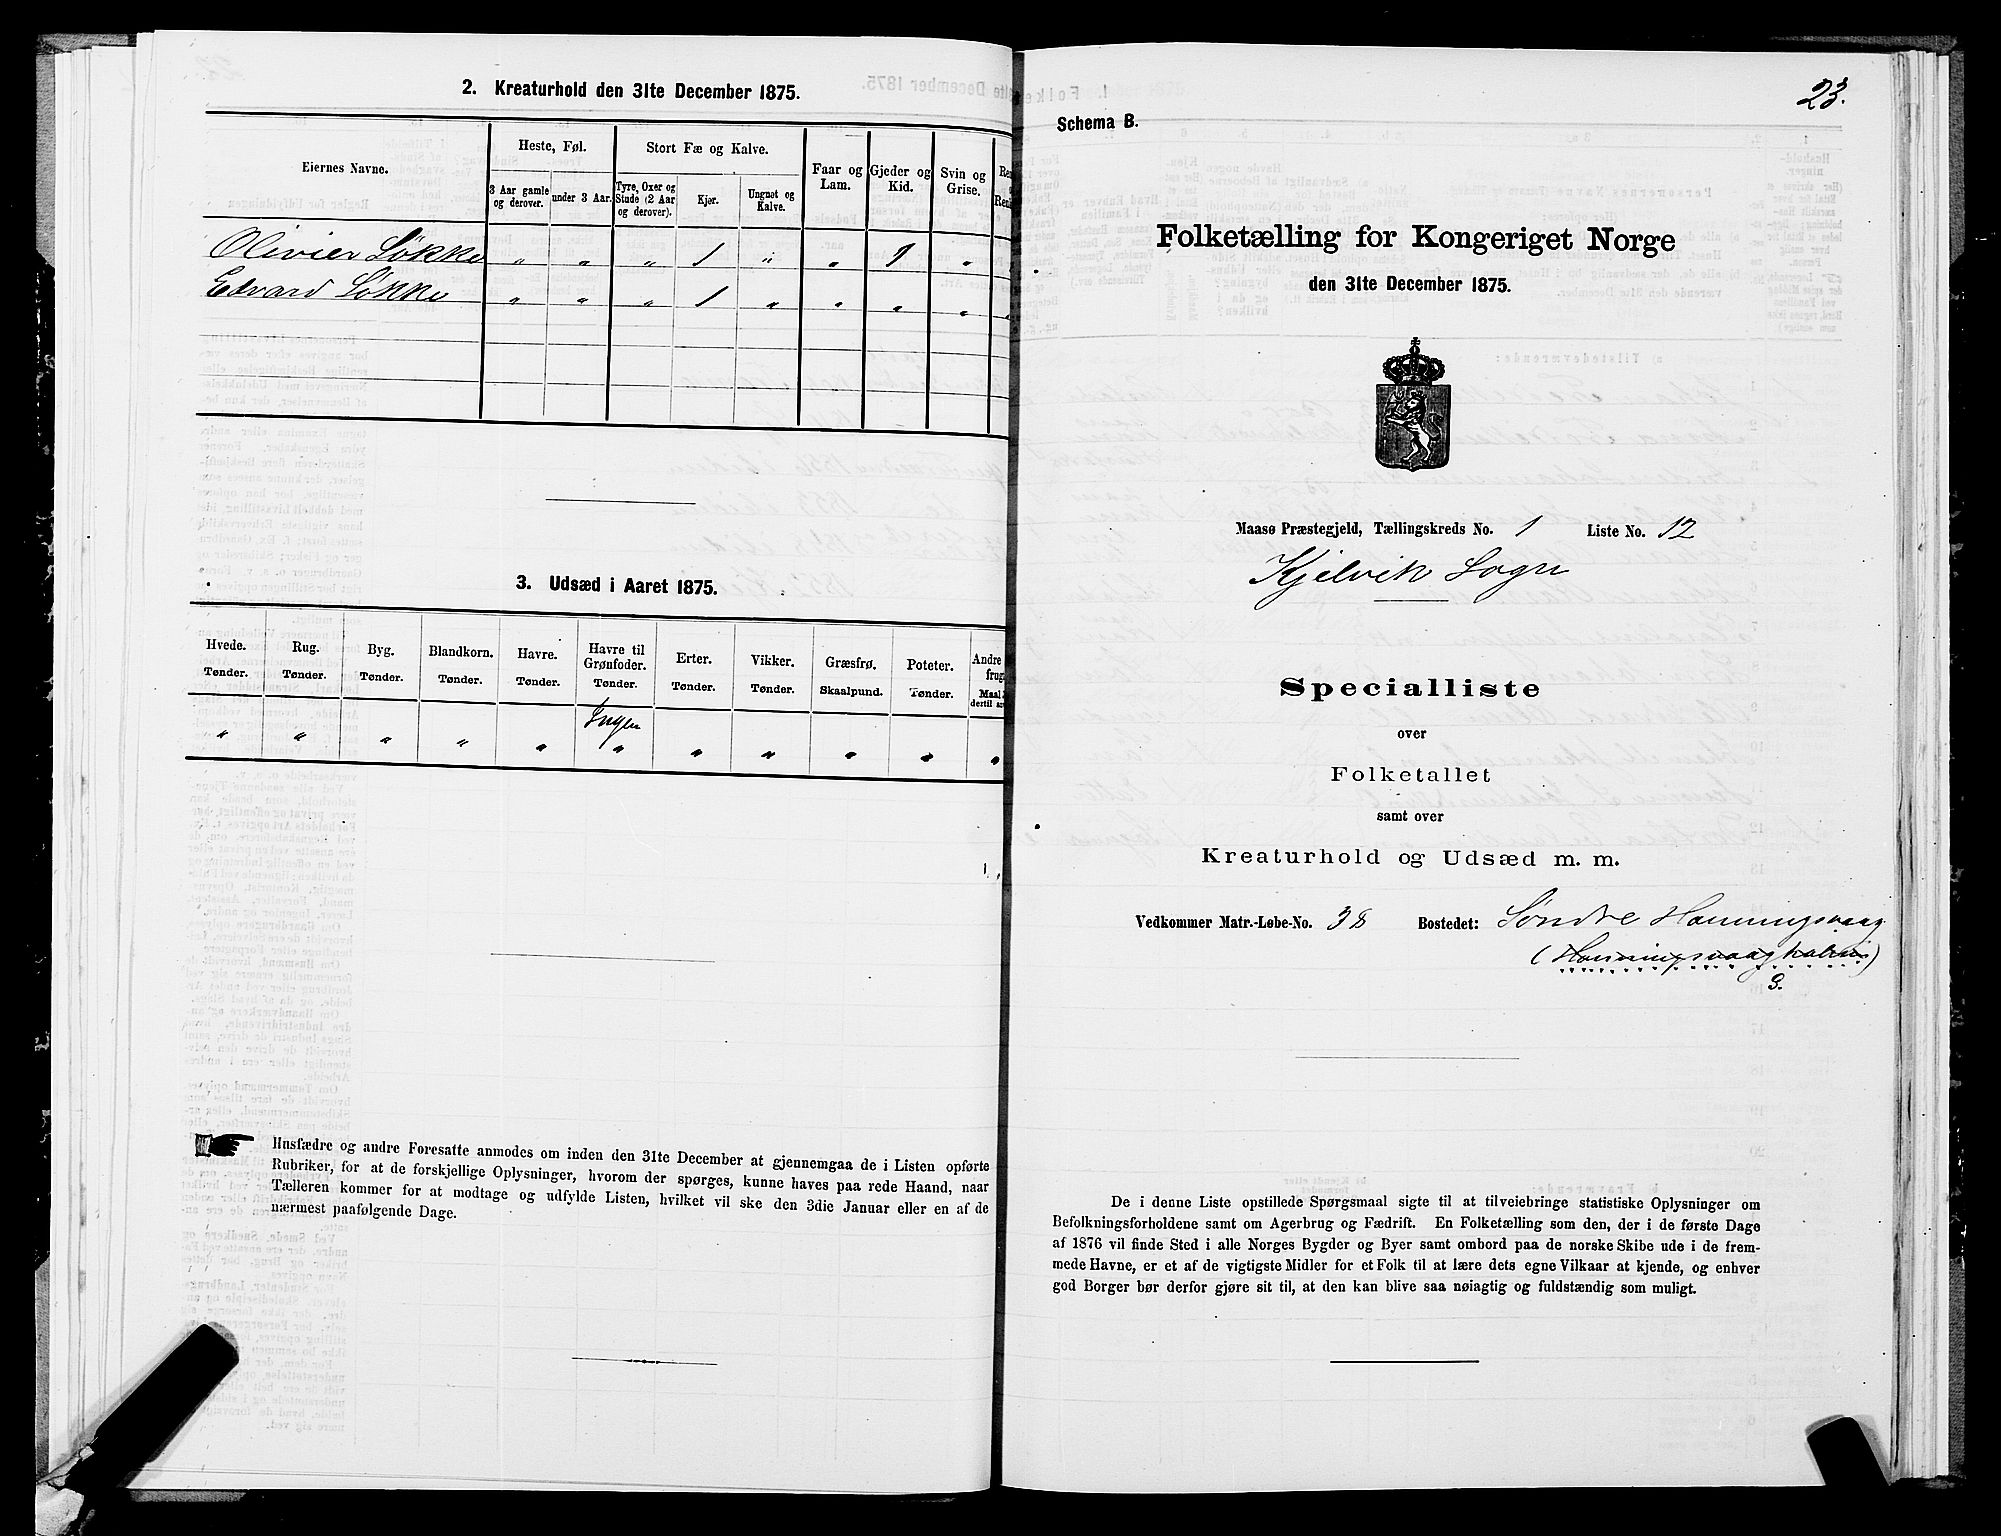 2. Kreaturhold den 31te December 1875.
Eiernes Navne.
Heste, Føl.
Stort Fæ og Kalve.
Faar og Lam.
Gjeder og Kid.
Svin og Grise.
3 Aar gamle og derover.
under 3 Aar.
Tyre, Oxer og Stude (2 Aar og derover).
Kjør.
Ungnøt og Kalve.
Olivier Løkke " " " 1 " " 1 "
Edvard Løkke " " " 1 " " " "
3. Udsæd i Aaret 1875.
Hvede. Rug. Byg. Blandkorn. Havre. Havre til Grønfoder. Erter. Vikker. Græsfrø. Poteter. Andre
Tønder. Tønder. Tønder. Tønder. Tønder. Tønder. Tønder. Tønder. Skaalpund. Tønder.
Ingen
" " " " " " " " " " "
Husfædre og andre Foresatte anmodes om inden den 31te December at gjennemgaa de i Listen opførte
Rubriker, for at de forskjellige Oplysninger, hvorom der spørges, kunne haves paa rede Haand, naar
Tælleren kommer for at modtage og udfylde Listen, hvilket vil ske den 3die Januar eller en af de
nærmest paafølgende Dage.
23.
Schema B.
Folketælling for Kongeriget Norge
den 31te December 1875.
Maasø Præstegjeld, Tællingskreds No. 1 Liste No. 12
Kjelvik Sogn
Specialliste
over
Folketallet
samt over
Kreaturhold og Udsæd m. m.
Vedkommer Matr.-Løbe-No. 38 Bostedet: Søndre Honningsvaag
De i denne Liste opstillede Spørgsmaal sigte til at tilveiebringe statistiske Oplysninger om
Befolkningsforholdene samt om Agerbrug og Fædrift. En Folketælling som den, der i de første Dage
af 1876 vil finde Sted i alle Norges Bygder og Byer samt ombord paa de norske Skibe ude i de frem-
mede Havne, er et af de vigtigste Midler for et Folk til at lære dets egne Vilkaar at kjende, og enhver
god Borger bør derfor gjøre sit til, at den kan blive saa nøiagtig og fuldstændig som muligt.